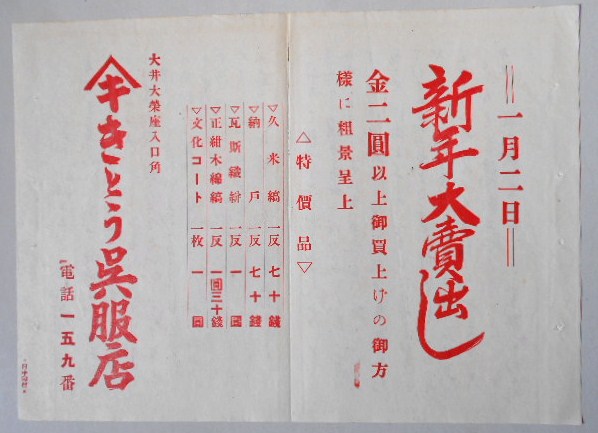 一月二日
新年大賣出し
金二圓以上御買上げの御方
様に粗景呈上
△特價品▽
▽久米縞一反七十錢
▽納戸一反七十錢
▽瓦斯織紺一反一圓
▽正紺木綿縞一反一圓三十錢
▽文化コート一枚一圓
大井大榮座入口角
キ きとう呉服店
電話一五九番